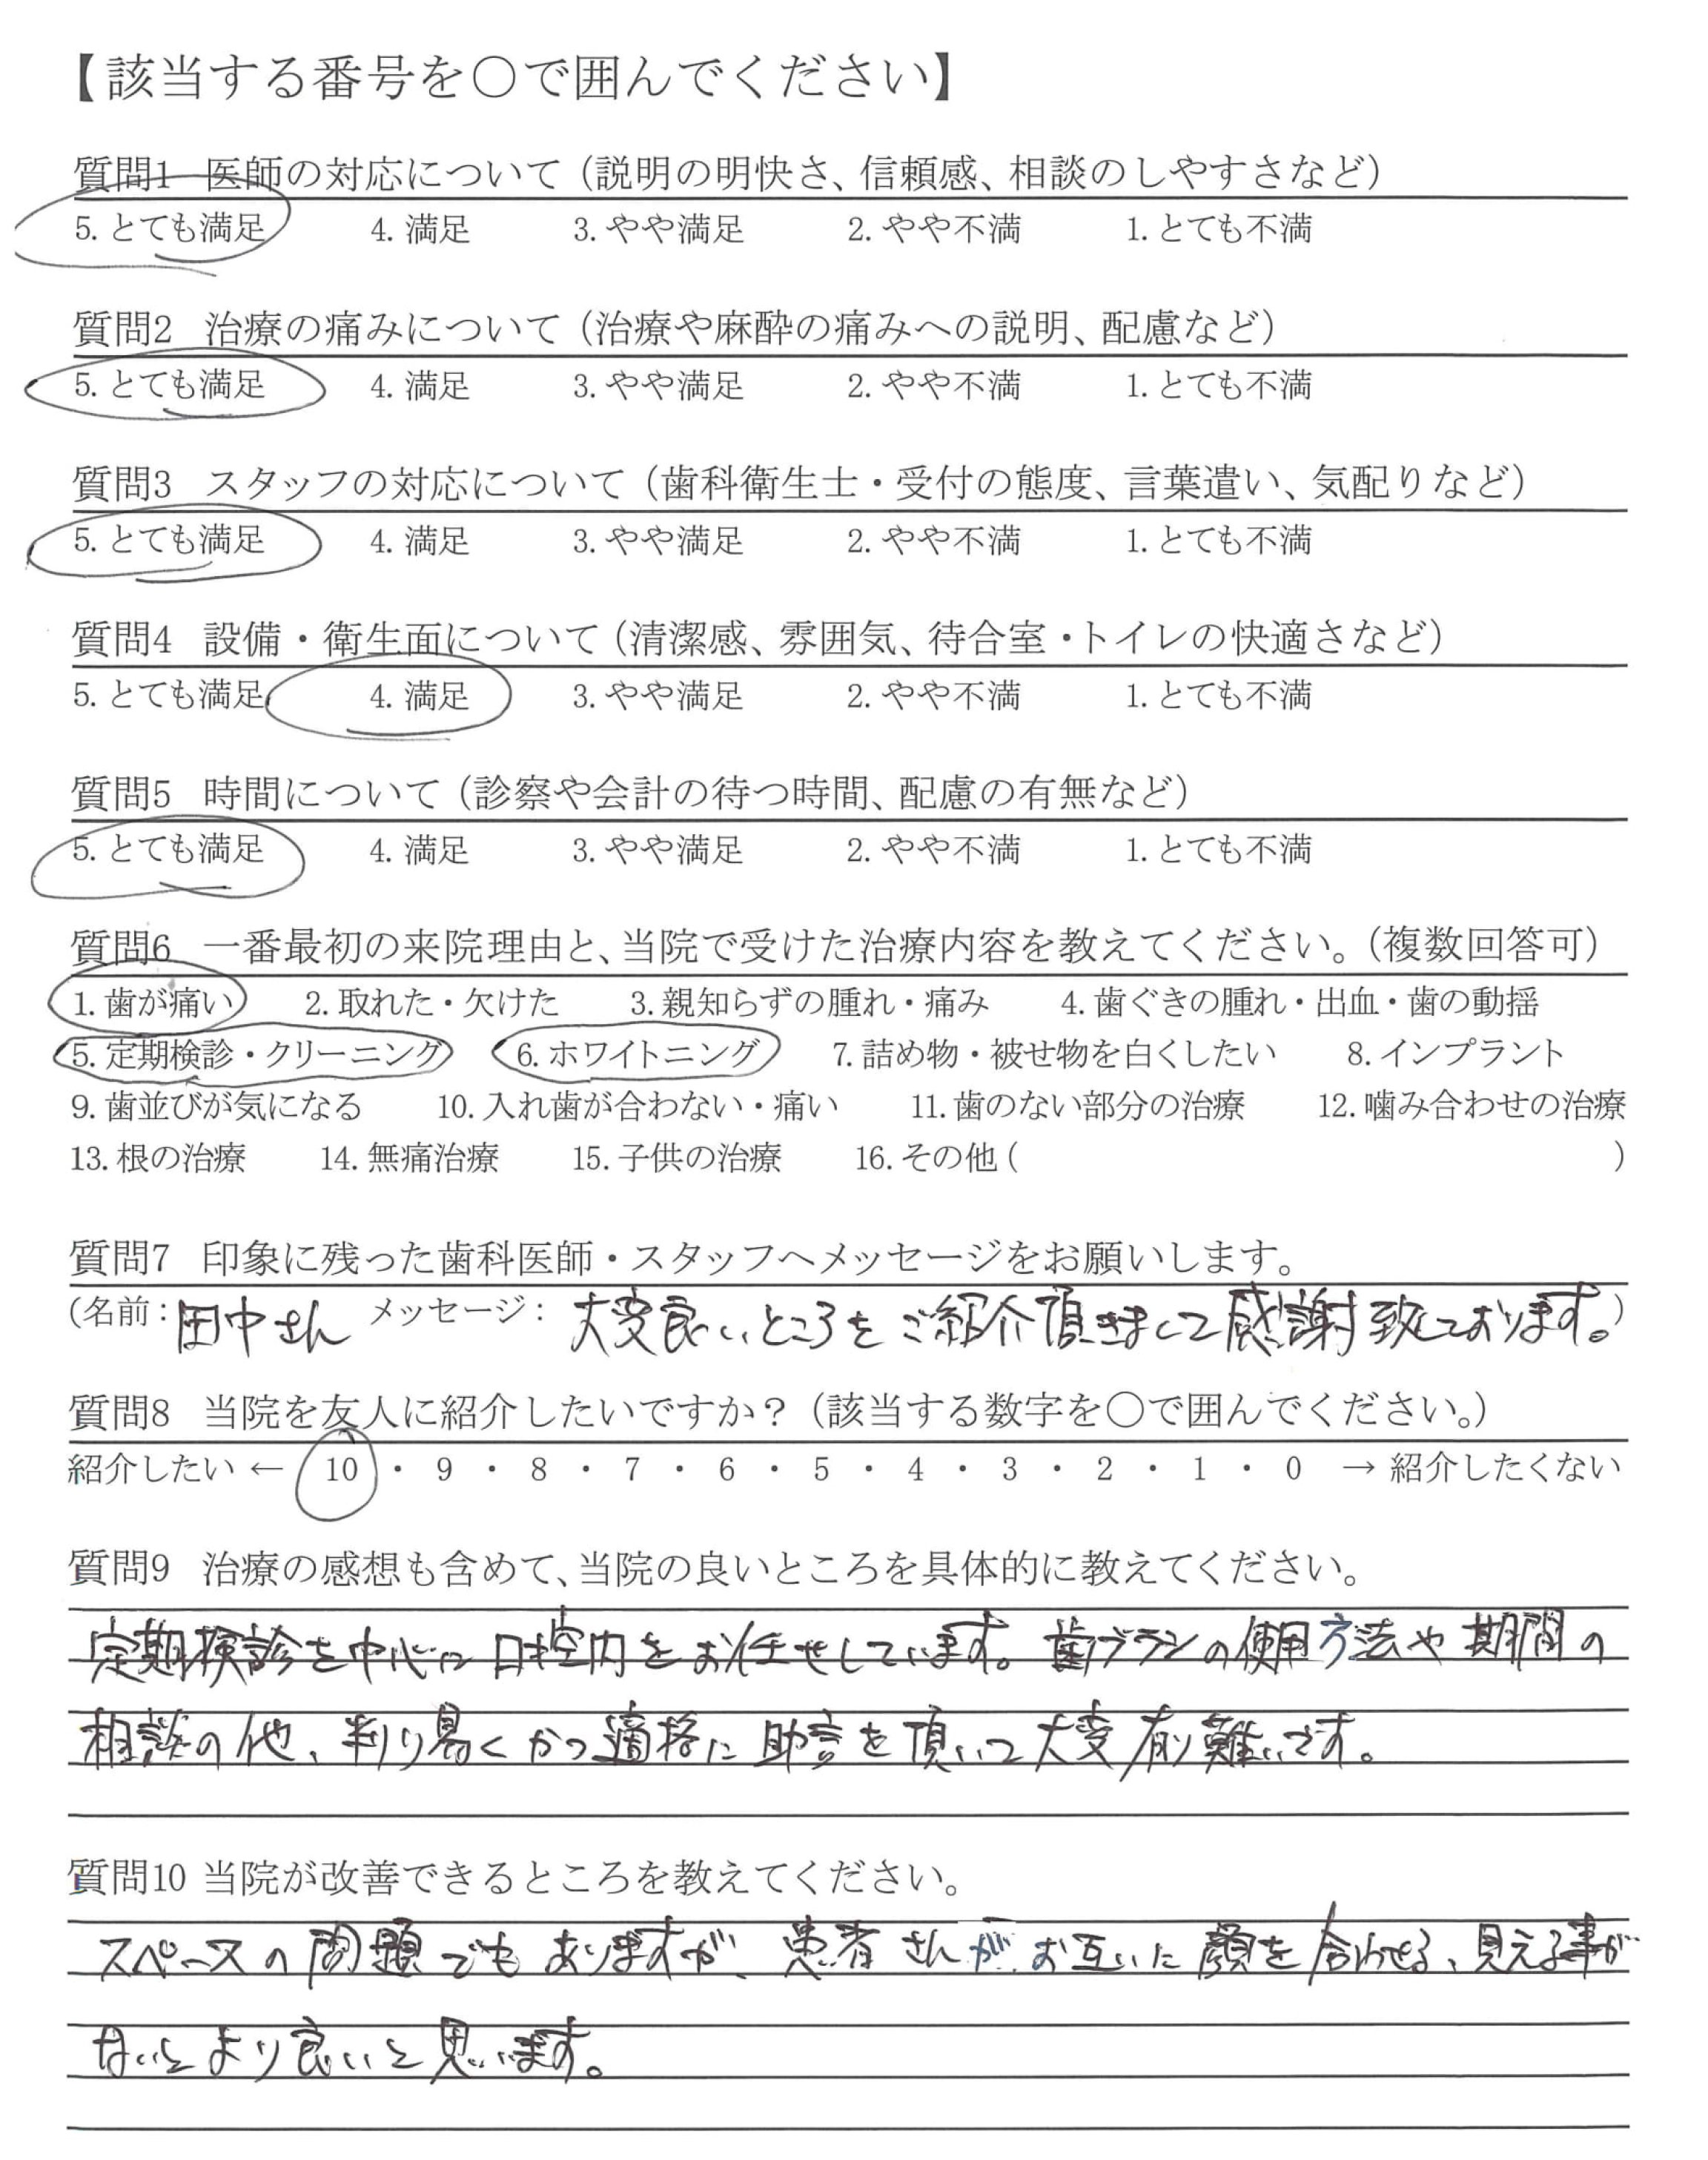 【該当する番号を○で囲んでください】
質問1 医師の対応について（説明の明快さ、信頼感、相談のしやすさなど）
5. とても満足 4. 満足 3. やや満足 2. やや不満 1. とても不満
質問2 治療の痛みについて（治療や麻酔の痛みへの説明、配慮など）
5. とても満足 4. 満足 3. やや満足 2. やや不満 1. とても不満
質問3 スタッフの対応について（歯科衛生士・受付の態度、言葉遣い、気配りなど）
5. とても満足 4. 満足 3. やや満足 2. やや不満 1. とても不満
質問4 設備・衛生面について（清潔感、雰囲気、待合室・トイレの快適さなど）
5. とても満足 4. 満足 3. やや満足 2. やや不満 1. とても不満
質問5 時間について（診察や会計の待つ時間、配慮の有無など）
5. とても満足 4. 満足 3. やや満足 2. やや不満 1. とても不満
質問6 一番最初の来院理由と、当院で受けた治療内容を教えてください。（複数回答可）
1. 歯が痛い 2. 取れた・欠けた 3. 親知らずの腫れ・痛み 4. 歯ぐきの腫れ・出血・歯の動揺
5. 定期検診・クリーニング 6. ホワイトニング 7. 詰め物・被せ物を白くしたい 8. インプラント
9. 歯並びが気になる 10. 入れ歯が合わない・痛い 11. 歯のない部分の治療 12. 噛み合わせの治療
13. 根の治療 14. 無痛治療 15. 子供の治療 16. その他（ ）
質問7 印象に残った歯科医師・スタッフへメッセージをお願いします。
（名前：田中さん メッセージ：大変良いところをご紹介頂きまして感謝致しております。）
質問8 当院を友人に紹介したいですか？（該当する数字を○で囲んでください。）
紹介したい ← 10 ・ 9 ・ 8 ・ 7 ・ 6 ・ 5 ・ 4 ・ 3 ・ 2 ・ 1 ・ 0 → 紹介したくない
質問9 治療の感想も含めて、当院の良いところを具体的に教えてください。
定期検診を中心に口腔内をお任せしています。歯ブラシの使用方法や期間の
相談の他、判り易くかつ適格に助言を頂いて大変有り難いです。
質問10 当院が改善できるところを教えてください。
スペースの問題でもありますが、患者さんがお互いに顔を合わせる、見える事が
ないとより良いと思います。